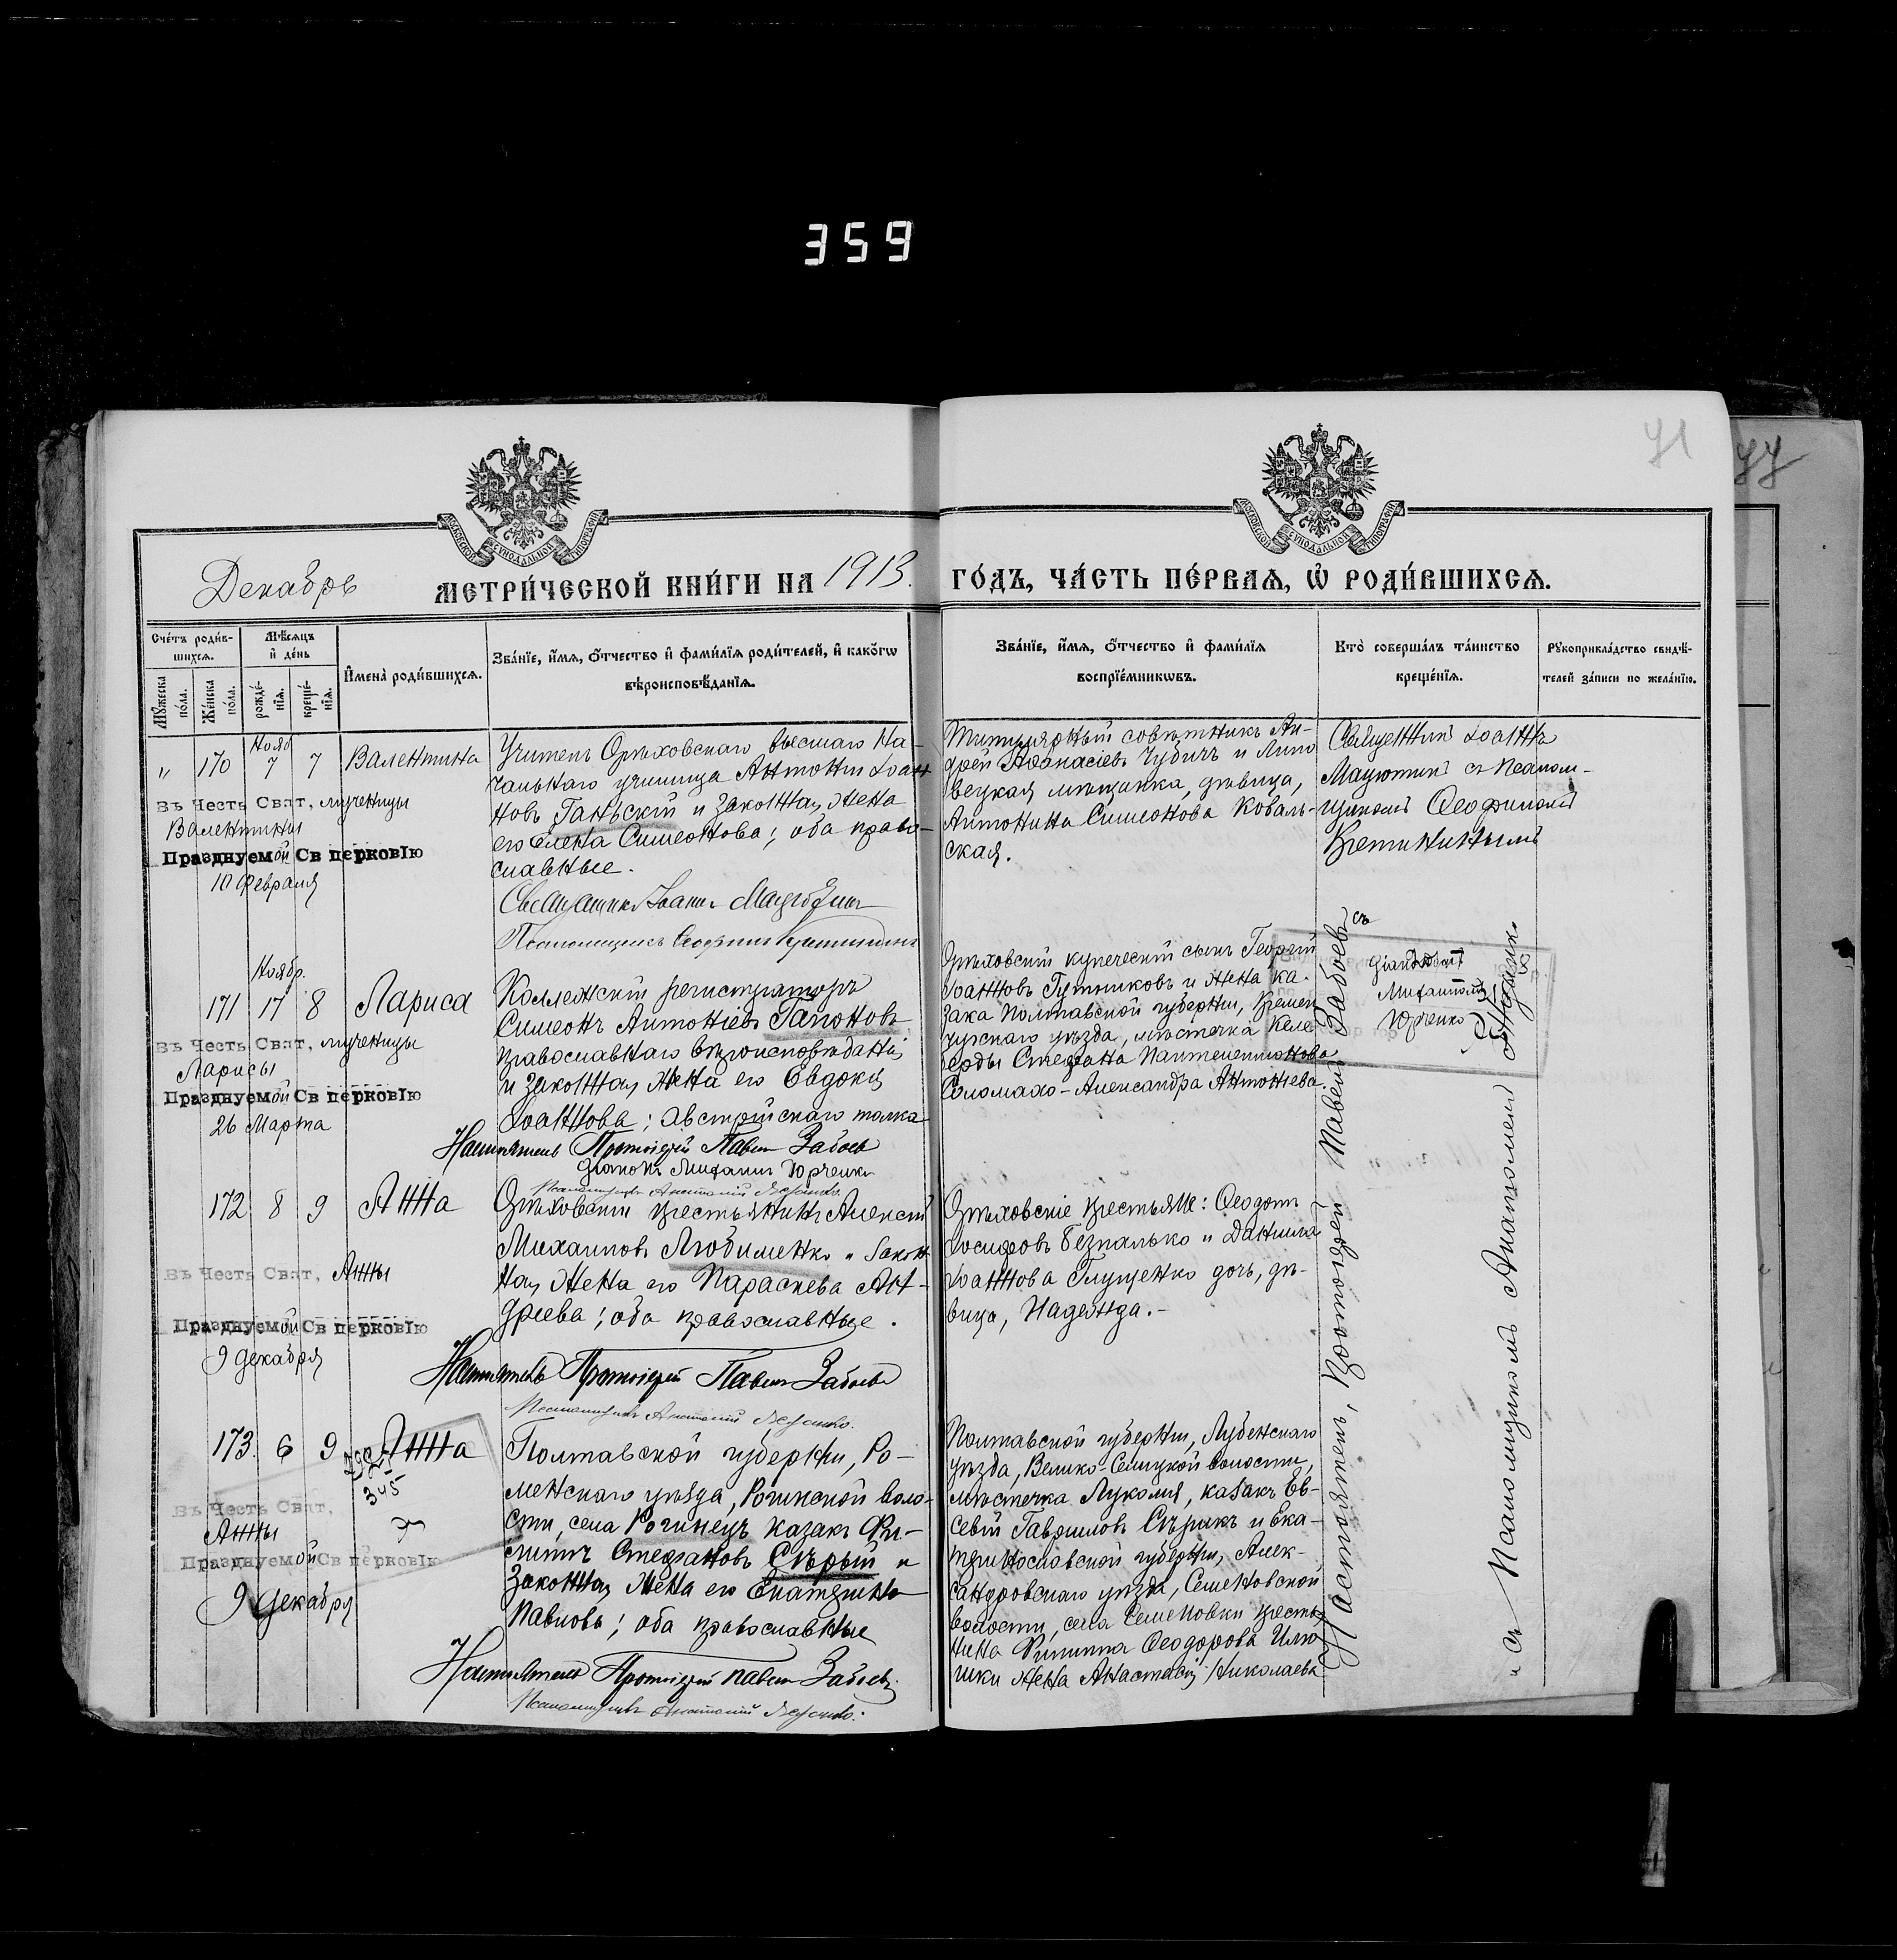 359
71
77
МОСКОВСКОЙ СУНОДАЛЬНОЙ ТИПОГРАФІИ
МОСКОВСКОЙ СУНОДАЛЬНОЙ ТИПОГРАФІИ
Декабрь МЕТРИ́ЧЕСКОЙ КНИ́ГИ НА 1913. ГО́ДЪ, ЧА́СТЬ ПЕ́РВАѦ, Ѡ҆ РОДИ́ВШИХСѦ.
Сче́тъ роди́в-
шихсѧ.
Мꙋ́жеска по́ла.
Же́нска по́ла.
Мѣ́сѧцъ и҆ де́нь
рожде́-
нїѧ.
креще́-
нїѧ.
И҆мена̀ роди́вшихсѧ.
Зва́нїе, и҆́мѧ, ѻ҆́тчество и҆ фами́лїѧ роди́телей, и҆ како́гѡ
вѣроисповѣ́данїѧ.
Зва́нїе, и҆́мѧ, ѻ҆́тчество и҆ фами́лїѧ
воспрїе́мникѡвъ.
Кто̀ соверша́лъ та́инство
креще́нїѧ.
Рꙋкоприкла́дство свидѣ́-
телей за́писи по жела́нїю.
Нояб.
" 170 7 7 Валентина
Въ Честь Свят, мученицы
Валентины
Празднуемой Св церковІю
10 Февраля
Учитель Орѣховскаго высшаго на-
чальнаго училища Антоній Іоан
новъ Ганьскій и законная жена
его Елена Симеонова; оба право-
славные.
Священникъ Іоаннъ Мацютинъ
Псаломщикъ Ѳеофилъ
Титулярный совѣтникъ Ан-
дрей Аѳанасіевъ Чубичъ и Липо
вецкая мѣщанка, дѣвица,
Антонина Симеонова Коваль-
ская.
Священникъ Іоаннъ
Мацютинъ съ псалом-
щикомъ Ѳеофиломъ
Ноябр.
171 17 8 Лариса
Въ Честь Свят, мученицы
Ларисы
Празднуемой Св церковІю
26 Марта
Коллежскій регистраторъ
Симеонъ Антоніевъ Гапоновъ
православнаго вѣроисповѣданія
и законная жена его Евдокія
Іоаннова; австрійскаго толка
Настоятель Протоіерей Павелъ Забоевъ
Діаконъ Михаилъ Юрченко
Псаломщикъ Анатолій
Орѣховскій купеческій сынъ Георгій
Іоанновъ Гутниковъ и жена ка-
зака Полтавской губерніи, Кремен
чугскаго уѣзда, мѣстечка Келе
берды Стефана Пантелеимонова
Соломахо-Александра Антоніева.
Настоятель, Протоіерей Павелъ Забоевъ съ
діакономъ
Михаиломъ
Юрченко
и съ Псаломщикомъ Анатоліемъ
172 8 9 Анна
Въ Честь Свят, Анны
Празднуемой Св церковІю
9 декабря
Орѣховскій крестьянинъ Алексій
Михаиловъ Любименко и закон
ная жена его Параскева Ан-
дреева; оба православные.
Настоятель Протоіерей Павелъ Забоевъ
Псаломщикъ Анатолій
Орѣховскіе крестьяне: Ѳеодотъ
Іосифовъ Безпалько и Даніила
Іоаннова Глущенко дочь, дѣ-
вица, Надежда.-
173. 6 9 Анна
345
Въ Честь Свят,
Анны
Празднуемой Св церковІю
9 декабря
Полтавской губерніи, Ро-
менскаго уѣзда, Рогинской воло-
сти, села Рогинецъ казакъ Фи-
липпъ Стефановъ Сѣрый и
законная жена его Екатерина
Павлова; оба православные
Настоятель Протоіерей Павелъ Забоевъ
Псаломщикъ Анатолій
Полтавской губерніи, Лубенскаго
уѣзда, Велико-Селицкой волости,
мѣстечка Лукомля, казакъ Ев-
севій Гавриловъ Сѣрикъ и Ека-
теринославской губерніи, Алек-
сандровскаго уѣзда, Семеновской
волости, села Семеновки крестья
нина Филиппа Ѳеодорова Илю
шки жена Анастасія Николаева